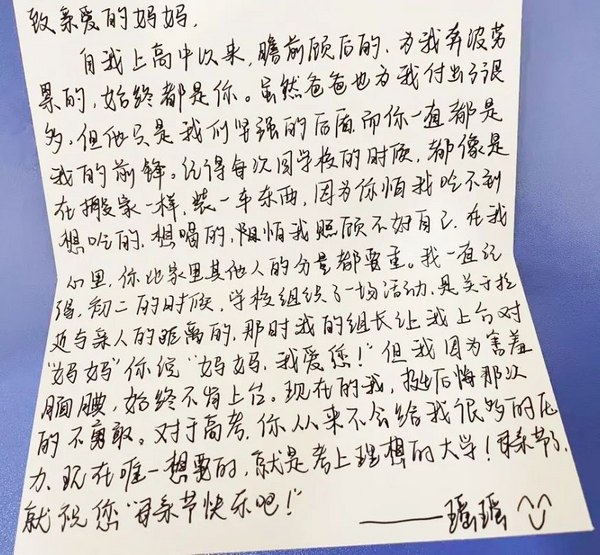 致亲爱的妈妈,
自我上高中以来,瞻前顾后的、为我奔波劳
累的,始终都是你。虽然爸爸也为我付出了很
多,但他只是我们坚强的后盾,而你一直都是
我的前锋。记得每次回学校的时候,都像是
在搬家一样,装一车东西,因为你怕我吃不到
想吃的,想喝的,怕我照顾不好自己,在我
心里,你比家里其他人的分量都要重。我一直记
得,初二的时候,学校组织了一场活动,是关于拉
近与亲人的距离的,那时我的组长让我上台对
"妈妈"你说"妈妈,我爱您!"但我因为害羞
腼腆,始终不肯上台。现在的我,后悔那次
的不勇敢。对于高考,你从来不会给我很多的压
力、现在唯一想要的,就是考上理想的大学!母亲节了,
就祝您"母亲节快乐吧!"
——瑶瑶